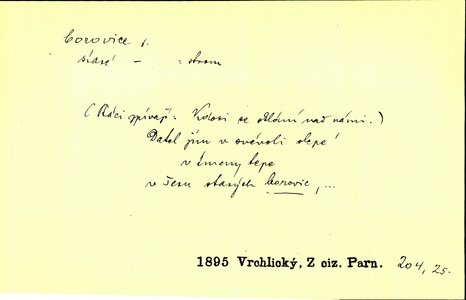 borovice f.
staré – : strom
(Ptáci zpívají: Kdosi se sklání nad námi.)
Datel jim v svévoli slepé
v kmeny tepe
v šeru starých borovic, ...
1895 Vrchlický, Z ciz. Parn. 204, 25.